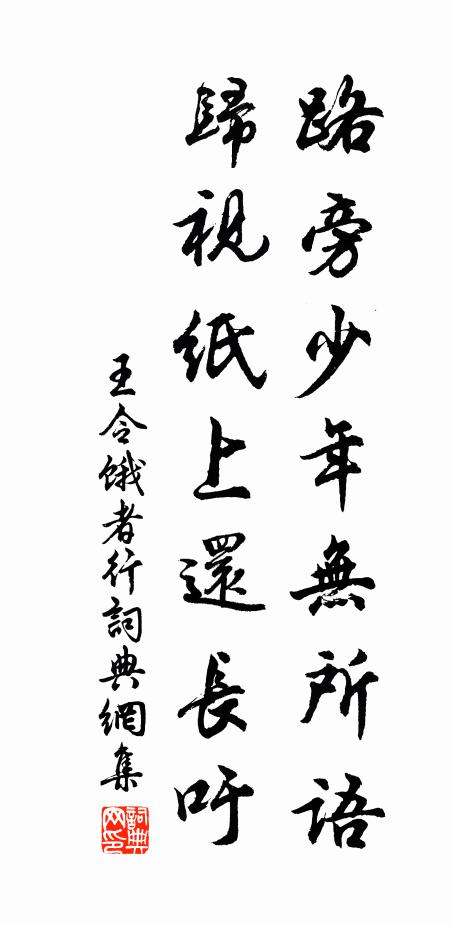 路旁少年無所語
歸視紙上還長吁
王令餓者行詞典網集
詞典网印